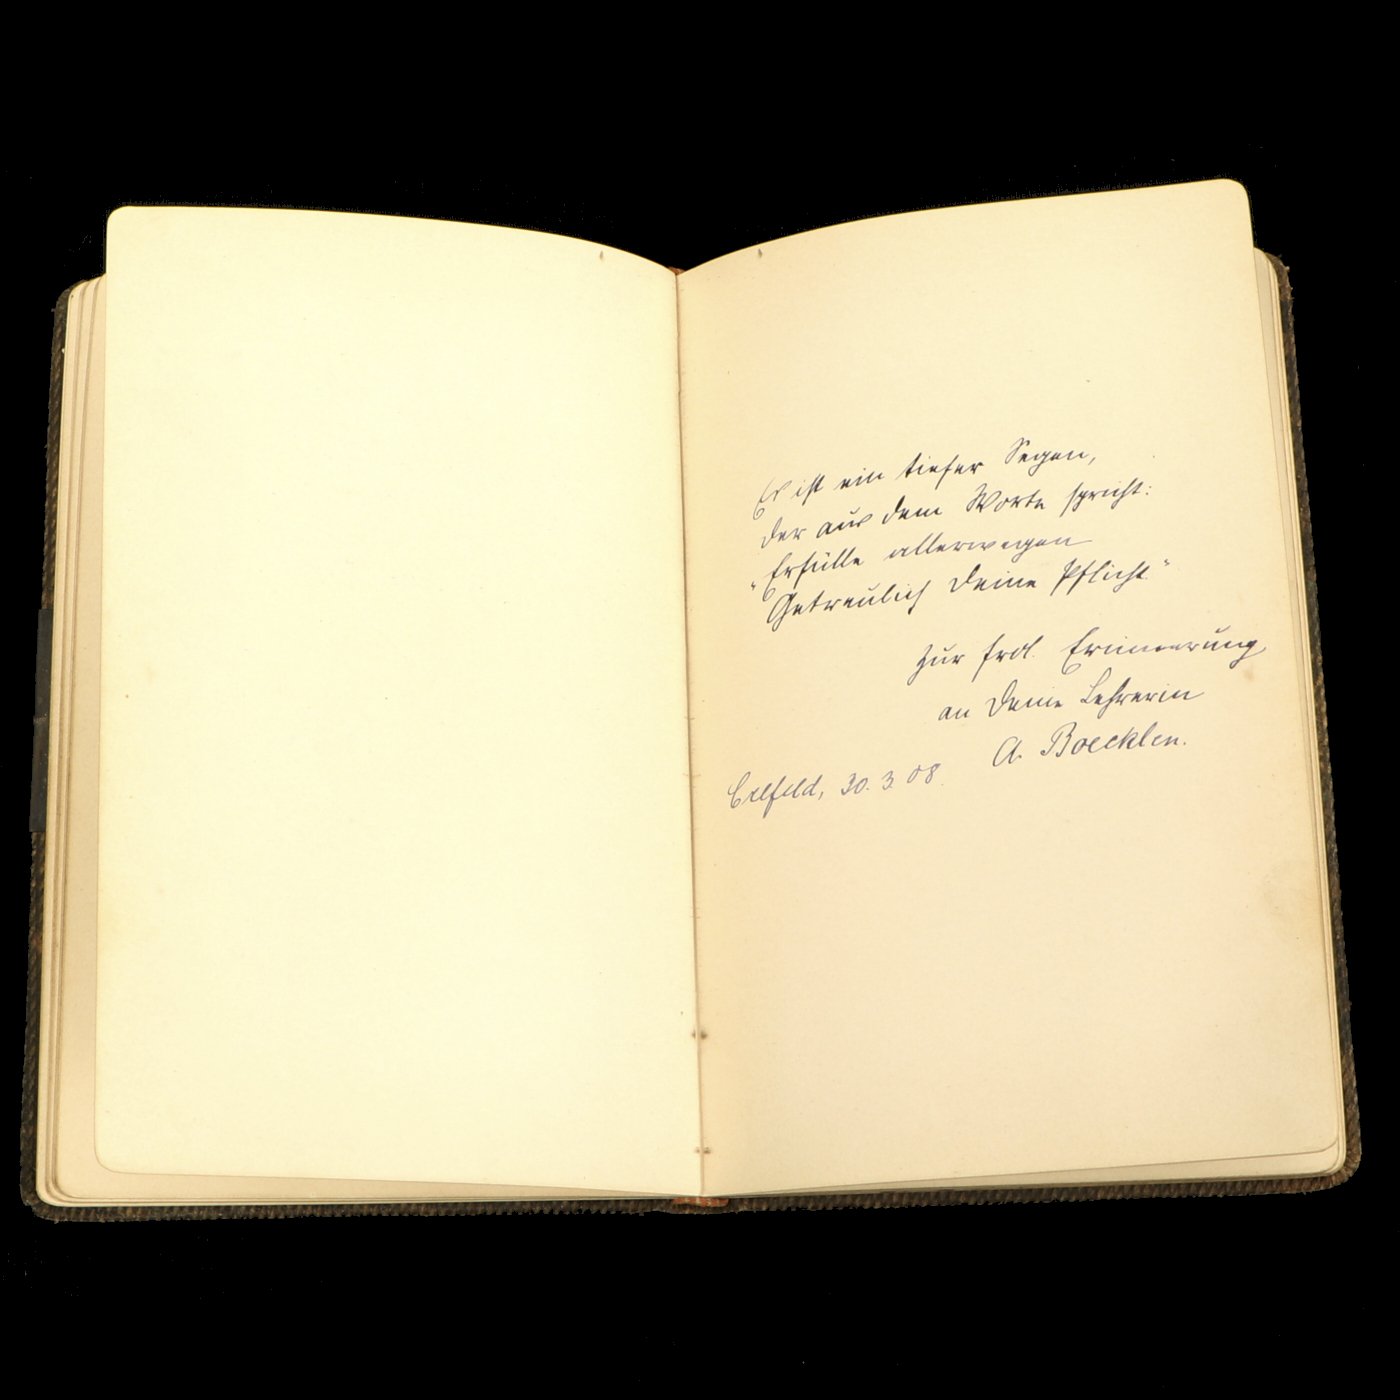 Es ist ein tiefer Segen,
der aus dem Worte spricht:
"Erfülle allerwegen
Getreulich deine Pflicht."
Zur frdl. Erinnerung
an Deine Lehrerin
A. Boecklen.
30.3.08.